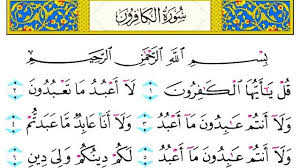 سُورَةُ الكَافِرُون
بِسْمِ اللَّهِ الرَّحْمَٰنِ الرَّحِيمِ
قُلْ يَٰٓأَيُّهَا الْكَٰفِرُونَ ١ لَآ أَعْبُدُ مَا تَعْبُدُونَ ٢
وَلَآ أَنتُمْ عَٰبِدُونَ مَآ أَعْبُدُ ٣ وَلَآ أَنَا۠ عَابِدٌ مَّا عَبَدتُّمْ ٤
وَلَآ أَنتُمْ عَٰبِدُونَ مَآ أَعْبُدُ ٥ لَكُمْ دِينُكُمْ وَلِيَ دِينِ ٦